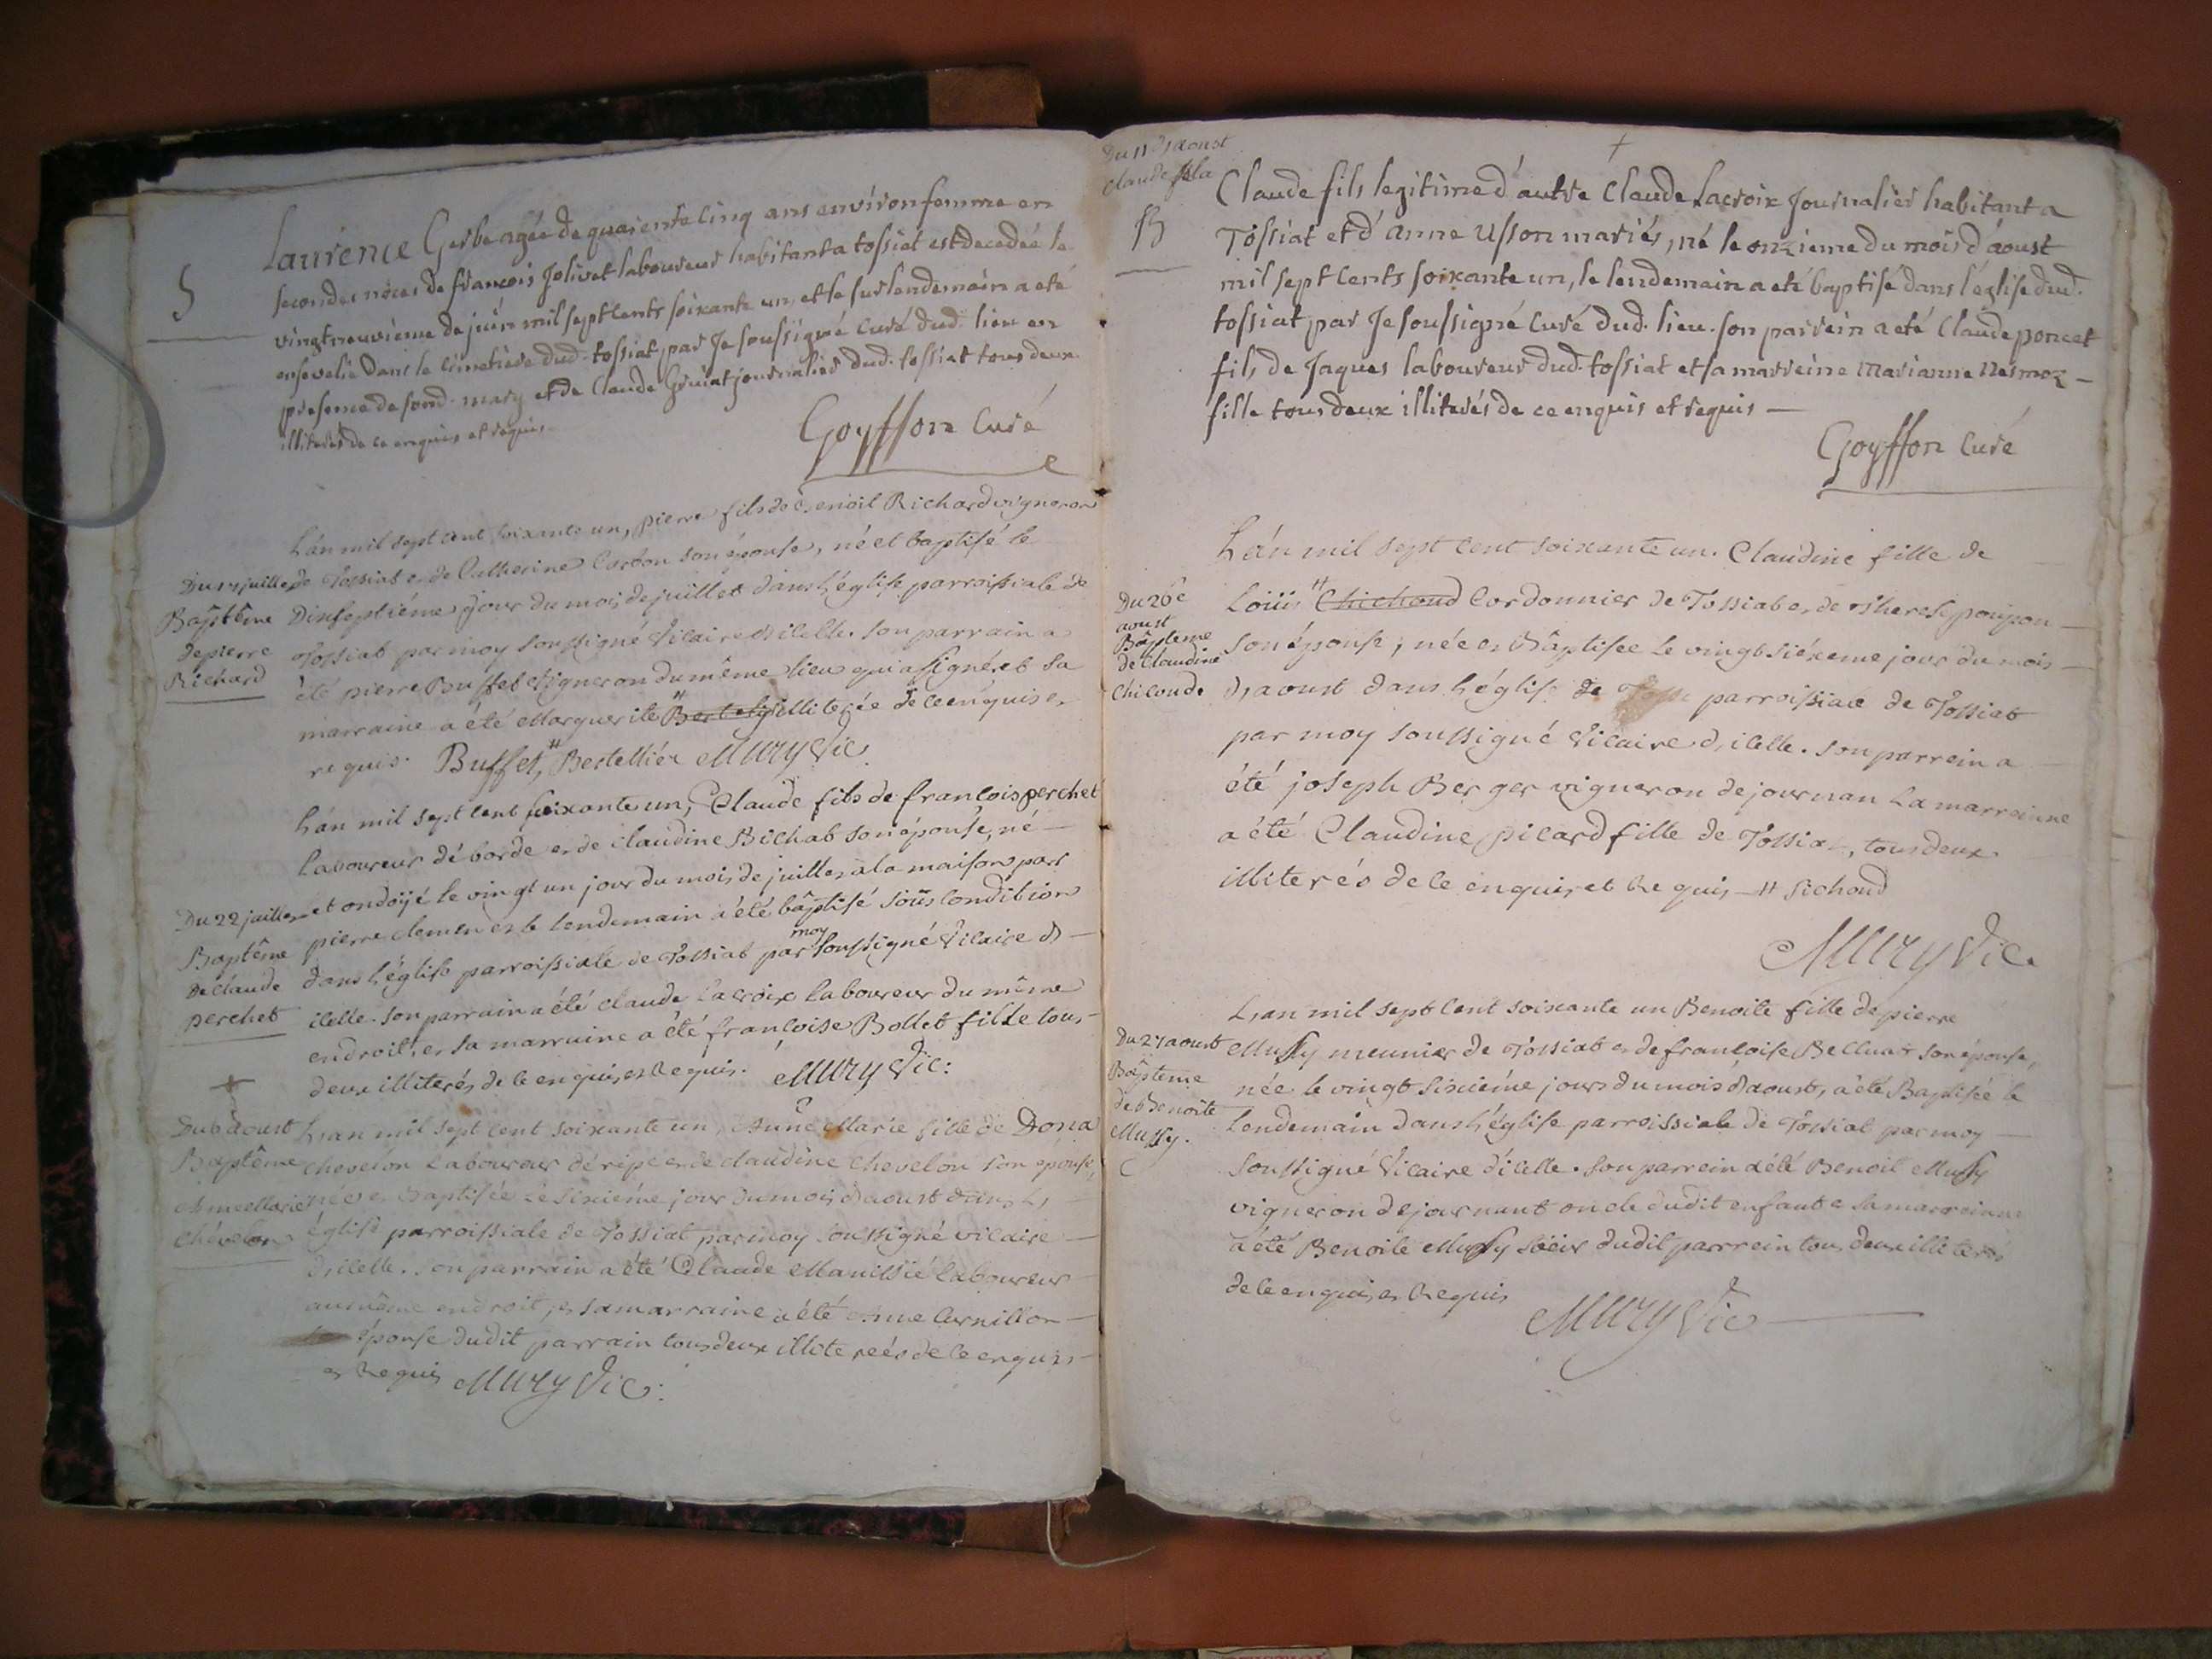 S
Laurence Gerbe agée de quarente cinq ans environ femme en
secondes nôces de françois Jolivet laboureur habitant a tossiat est decedée le
vingt neuvieme de juin mil sept cents soixante un, et le surlendemain a eté
ensevelie dans le cimetiere dud. tossiat par Je soussigné Curé dud. lieu en
presence de sond. mary et de Claude Gruiat journalier dud. tossiat tous deux
illiterés de ce enquis et requis.
Goyffon Curé
L'an mil sept cent soixante un, pierre fils de Benoit Richard vigneron
de Tossiat et de Catherine Carbon son épouse, né et baptisé le
Du 17 juillet
Baptême
de pierre
Richard
Dixseptiéme jour du mois de juillet dans l'église parroissiale de
Tossiat par moy soussigné Vicaire d'icelle. son parrain a
été pierre Buffet vigneron du même lieu qui a signé, et sa
marraine a été Marguerite # illiterée de ce enquise et
requis. Buffet, # Bertellier Mury Vic.
L'an mil sept cent soixante un, Claude fils de francois perchet
Laboureur dé borde et de claudine Bichat son épouse, né
Du 22 juillet
Baptême
de claude
perchet
et ondoÿé le vingt un jour du mois de juillet a la maison par
pierre clemen et le lendemain a été bâptisé sous condition
dans l'église parroissiale de Tossiat par moy soussigné Vicaire d
icelle. son parrain a été claude Lacroix laboureur du même
endroit, et sa marraine a été francoise Bollet fille tous
deux illiterés de ce enquis et Requis. Mury Vic:
+
Du 6 aoust
Baptême
Anne Marie
Chevelon
L'an mil sept cent soixante un, Anne Marie fille de Dona
chevelon Laboureur dé ripe et de claudine chevelon son epouse,
née et Baptisée Le Sixiéme jour du mois d'aoust dans L'
église parroissiale de Tossiat par moy soussigné vicaire
d'icelle. son parrain a été Claude Manissié Laboureur
au même endroit, et sa marraine a été Anne Curnillon
épouse dudit parrain tous deux illiterées de ce enquis
et Requis Mury Vic:
Du 11 d'aoust
claude fils la
B
+
Claude fils legitime d'autre Claude Lacroix Journalier habitant a
Tossiat et d'anne Usson mariés, né le onzieme du mois d'aoust
mil sept cents soixante un, le lendemain a eté baptisé dans l'église dud.
tossiat par Je soussigné Curé dud. lieu. son parrein a eté Claude poncet
fils de Jaques laboureur dud. tossiat et sa marreine Marianne Nesmoz
fille tous deux illiterés de ce enquis et requis
Goyffon Curé
L'an mil sept cent soixante un. Claudine fille de
Du 26e
aoust
Bâpteme
de Claudine
Chicoude
Loüis # Chichoud Cordonnier de Tossiat et de Therese poupon
son épouse; née et Bâptisee le vingt siéxeme jour du mois
d'aoust dans l'églis de parroissiale de Tossiat
par moy soussigné Vicaire d'icelle. son parrein a
été joseph Berger vigneron de journan La marreinne
a été Claudine picard fille de Tossiat, tous deux
illiterés de ce enquis et Requis # Sichoud
Mury Vic.
L'an mil sept cent soixante un Benoite fille de pierre
Du 27 aoust
Bâpteme
de Benoîte
Mussy.
Mussy meunier de Tossiat et de francoise Belluat son épouse,
née le vingt sixiéme jours du mois d'aoust, a été Baptisée le
lendemain dans l'église parroissiale de Tossiat par moy
soussigné Vicaire d'icelle. son parrein a été Benoit Mussy
vigneron de journant oncle dudit enfant et sa marreinne
a été Benoite Mussy sœur dudit parrrein tous deux illiterés
de ce enquis et Requis
Mury Vic